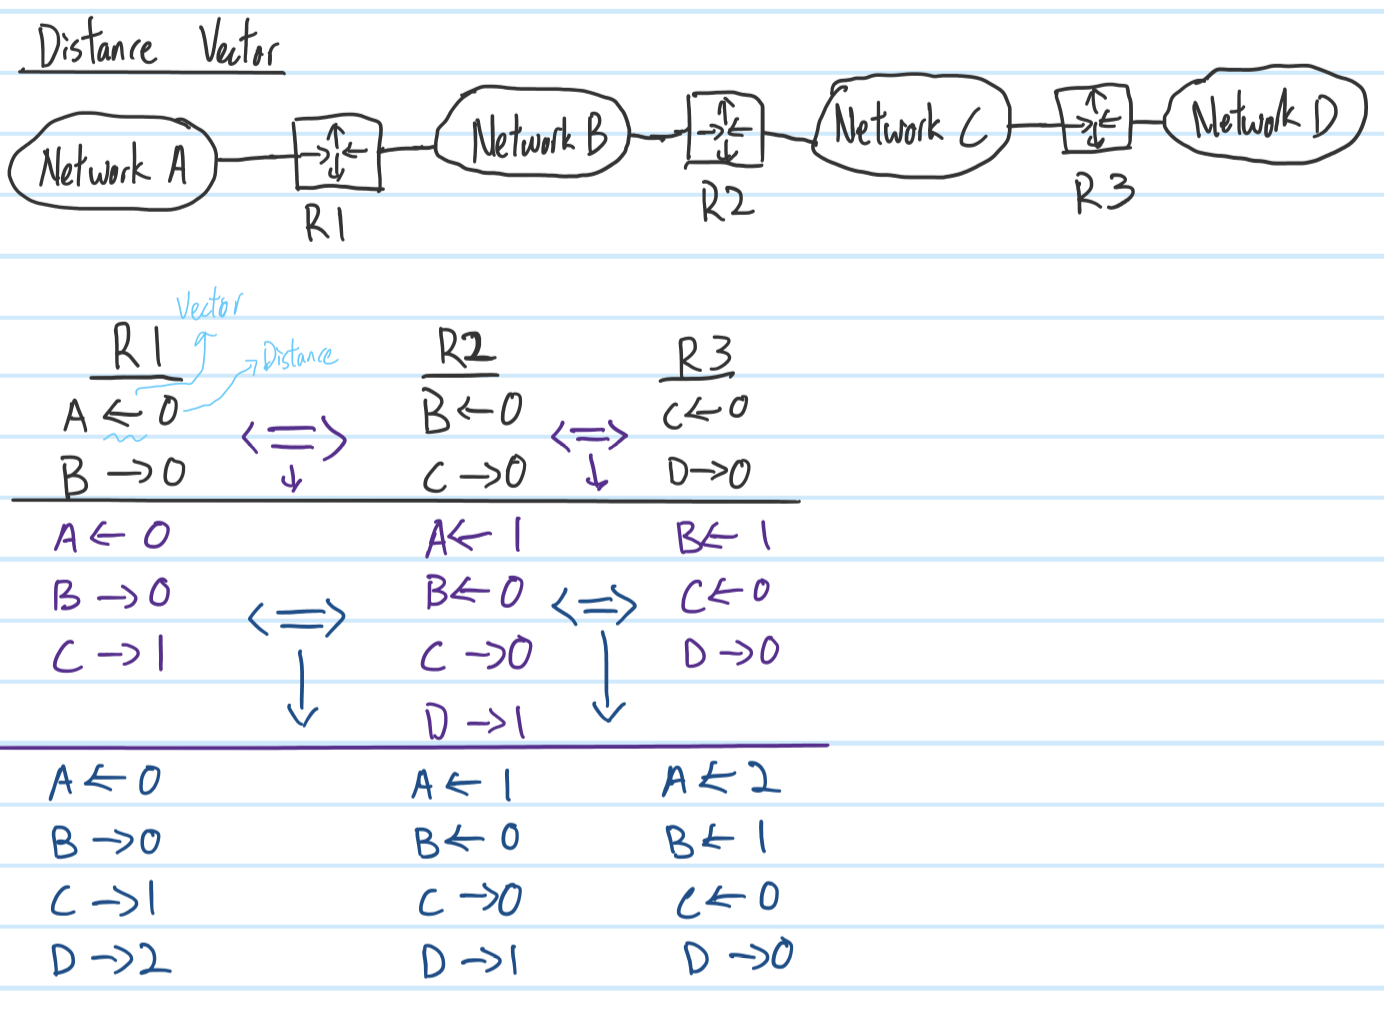 Distance Vector
Network A
Network B
Network C
Network D
R1
R2
R3
Vector
Distance
R1 R2 R3
A ← 0 B ← 0 C ← 0
B → 0 C → 0 D → 0
A ← 0 A ← 1 B ← 1
B → 0 B ← 0 C ← 0
C → 1 C → 0 D → 0
D → 1
A ← 0 A ← 1 A ← 2
B → 0 B ← 0 B ← 1
C → 1 C → 0 C ← 0
D → 2 D → 1 D → 0